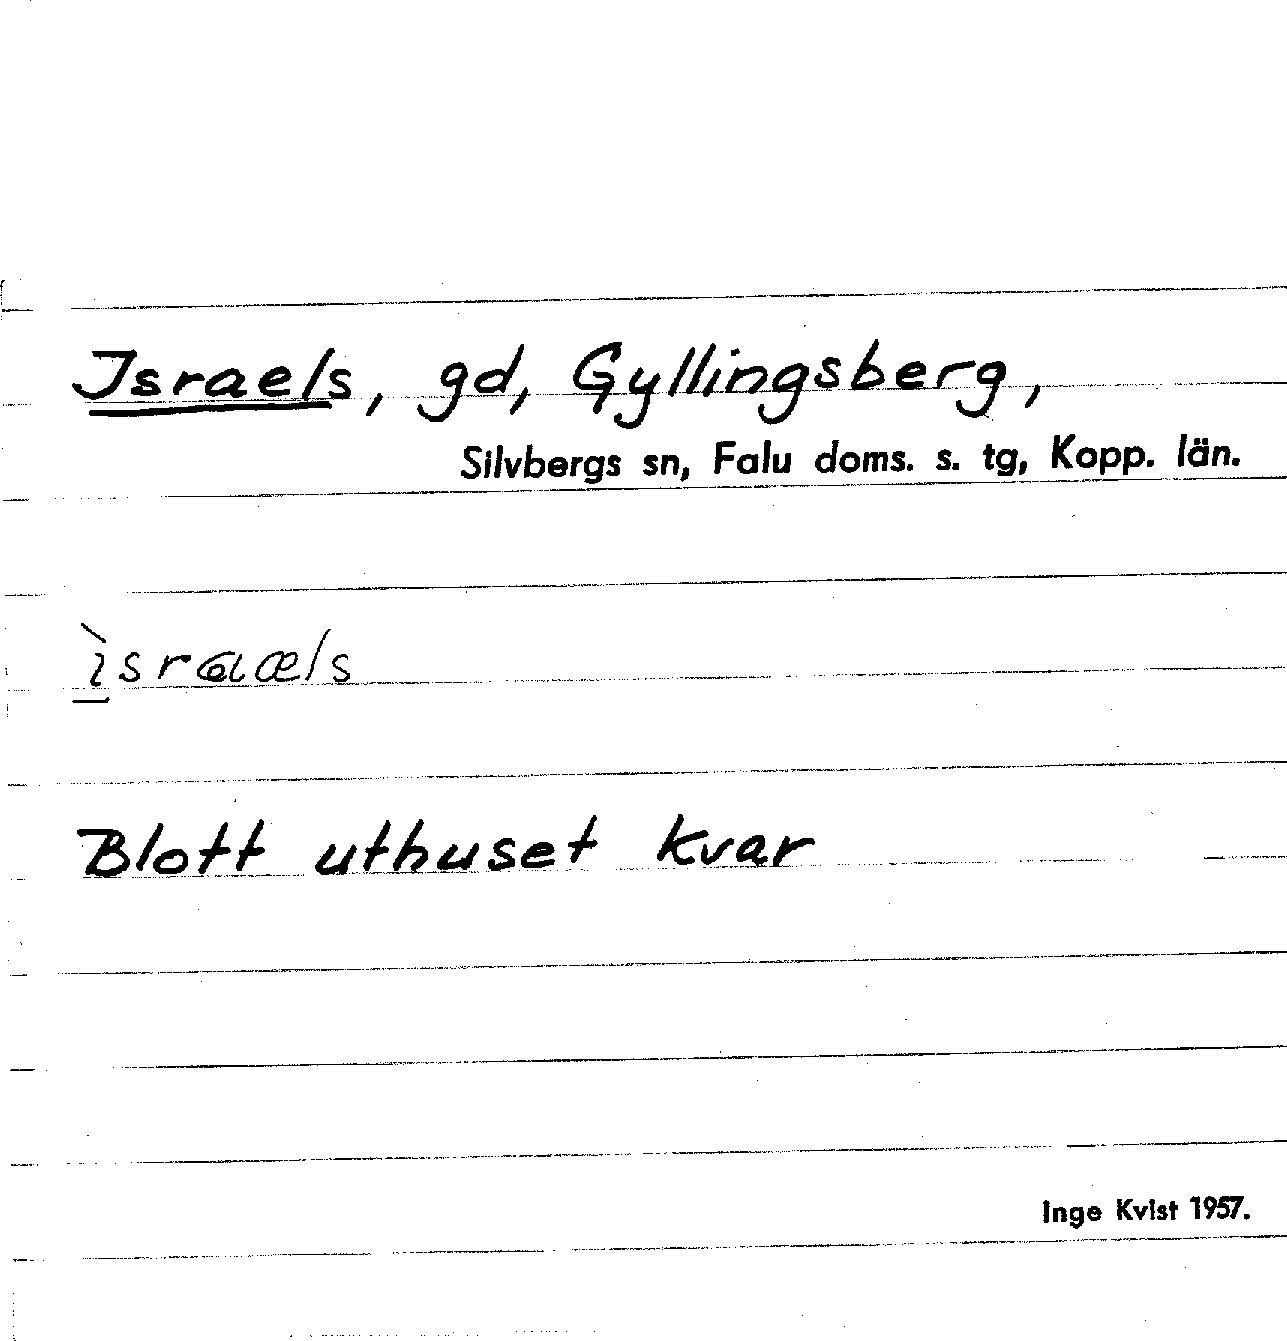 Israels, gd, Gyllingsberg,
Silvbergs sn, Falu doms. s. tg, Kopp. län.
Blott uthuset kvar
Inge Kvist 1957.